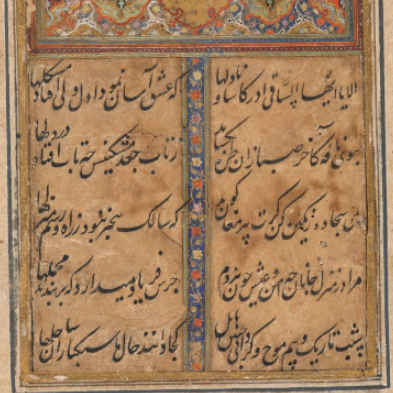 الا یا ایها الساقی ادر کاسا و ناولها که عشق آسان نمود اول ولی افتاد مشکلها
ببوی نافه کاخر صبا زان طره بگشاید زتاب جعد مشکینش چه تاب افتاد در دلها
بمی سجاده رنگین کن گرت پیر مغان گوید که سالک بیخبر نبود ز راه و رسم منزلها
مرا در منزل جانان چه امن عیش چون هردم جرس فریاد میدارد که بربندید محملها
شب تاریک و بیم موج و گردابی چنین هایل کجا دانند حال ما سبکباران ساحلها